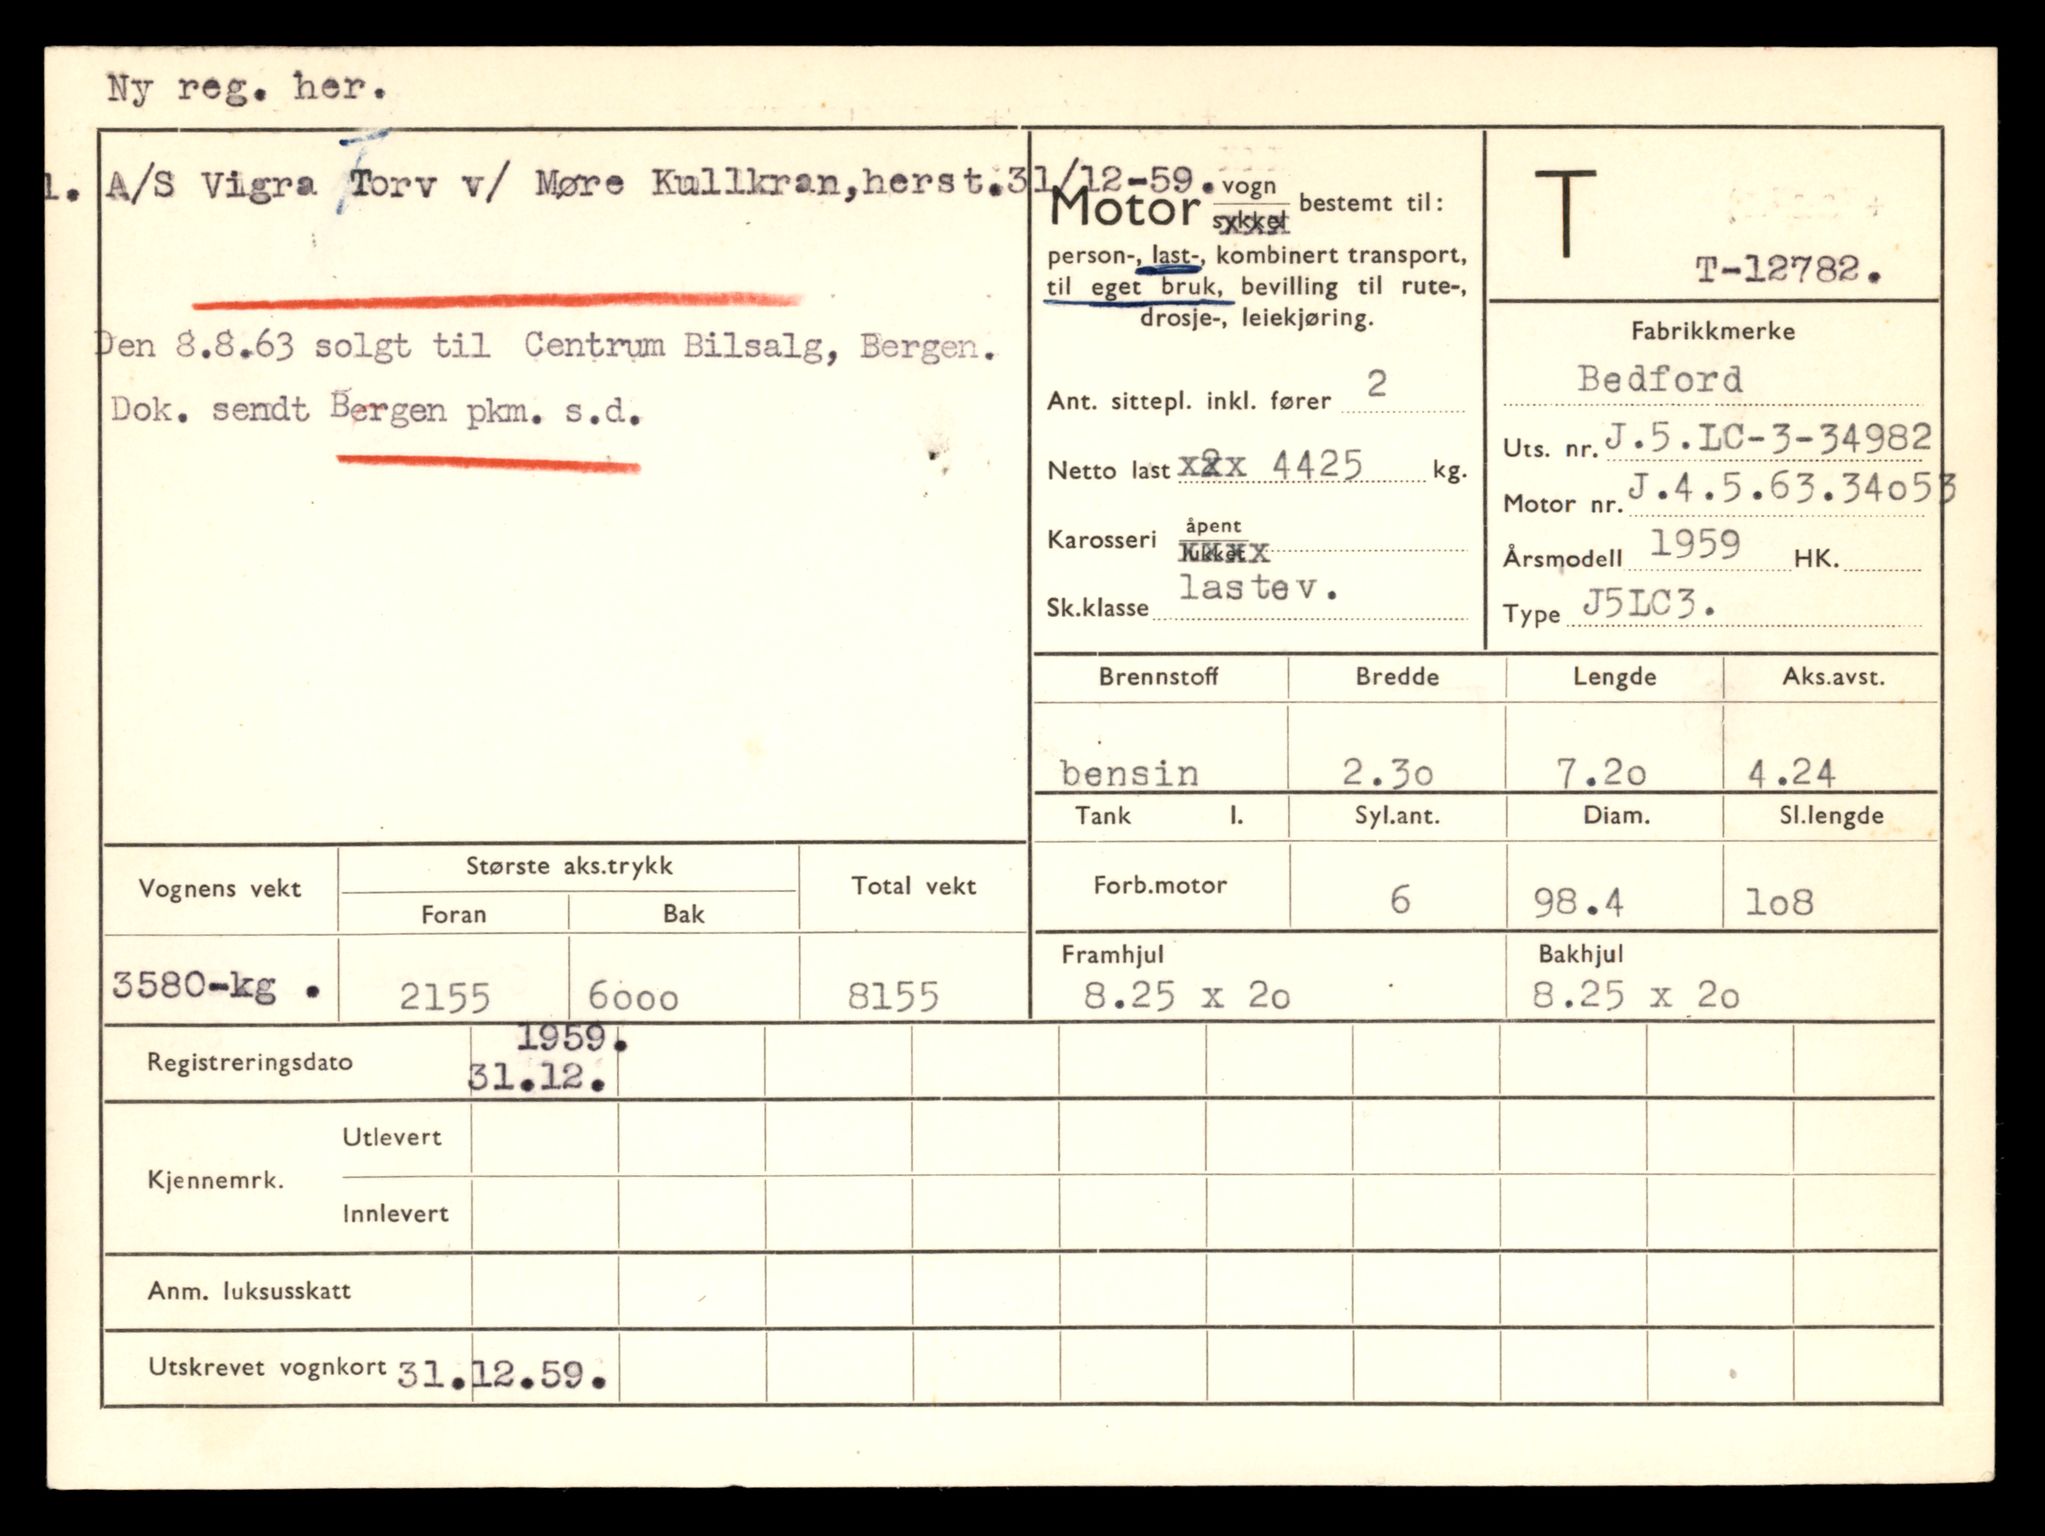 Ny reg. her.
1. A/S Vigra Torv v/ Møre Kullkran,herst.31/12-59.
Den 8.8.63 solgt til Centrum Bilsalg, Bergen.
Dok. sendt Bergen pkm. s.d.
Motor vogn
sykkel bestemt til:
person-, last-, kombinert transport,
til eget bruk, bevilling til rute-,
drosje-, leiekjøring.
Ant. sittepl. inkl. fører 2
Netto last x2x 4425 kg.
Karosseri åpent
lukket
Sk.klasse lastev.
T
T-12782.
Fabrikkmerke
Bedford
Uts. nr. J.5.LC-3-34982
Motor nr. J.4.5.63.34o53
Årsmodell 1959 HK.
Type J5LC3.
Brennstoff Bredde Lengde Aks.avst.
bensin 2.3o 7.2o 4.24
Tank l. Syl.ant. Diam. Sl.lengde
Forb.motor 6 98.4 lo8
Framhjul Bakhjul
8.25 x 2o 8.25 x 2o
Vognens vekt Største aks.trykk Total vekt
Foran Bak
3580-kg . 2155 6ooo 8155
Registreringsdato 1959.
31.12.
Kjennemrk. Utlevert
Innlevert
Anm. luksusskatt
Utskrevet vognkort 31.12.59.